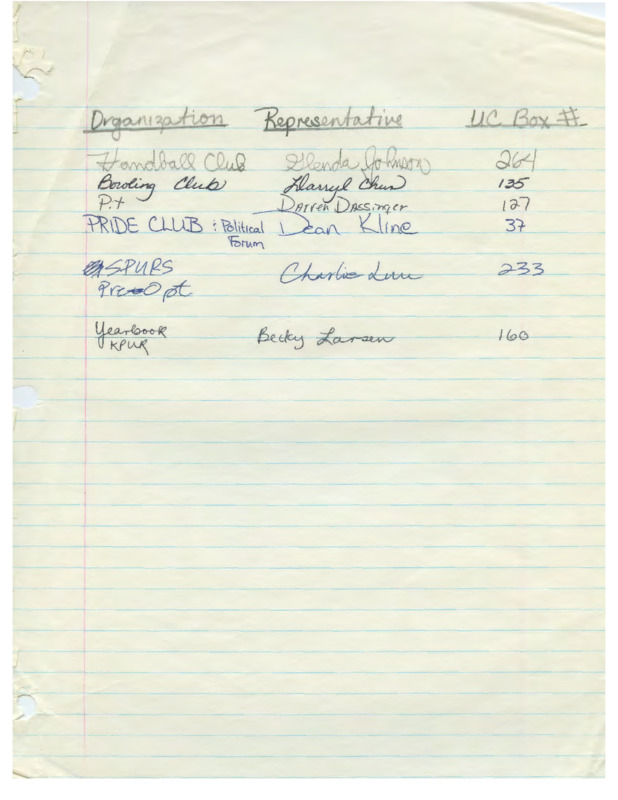 Organization Representative UC Box #
Handball Club Glenda Johnson 264
Bowling Club Darryl Chun 135
P.t Darren Dassinger 127
PRIDE CLUB : Political Dean Kline 37
Forum
SPURS Charlie 233
Pre-Opt
Yearbook Becky Larsen 160
KPUR